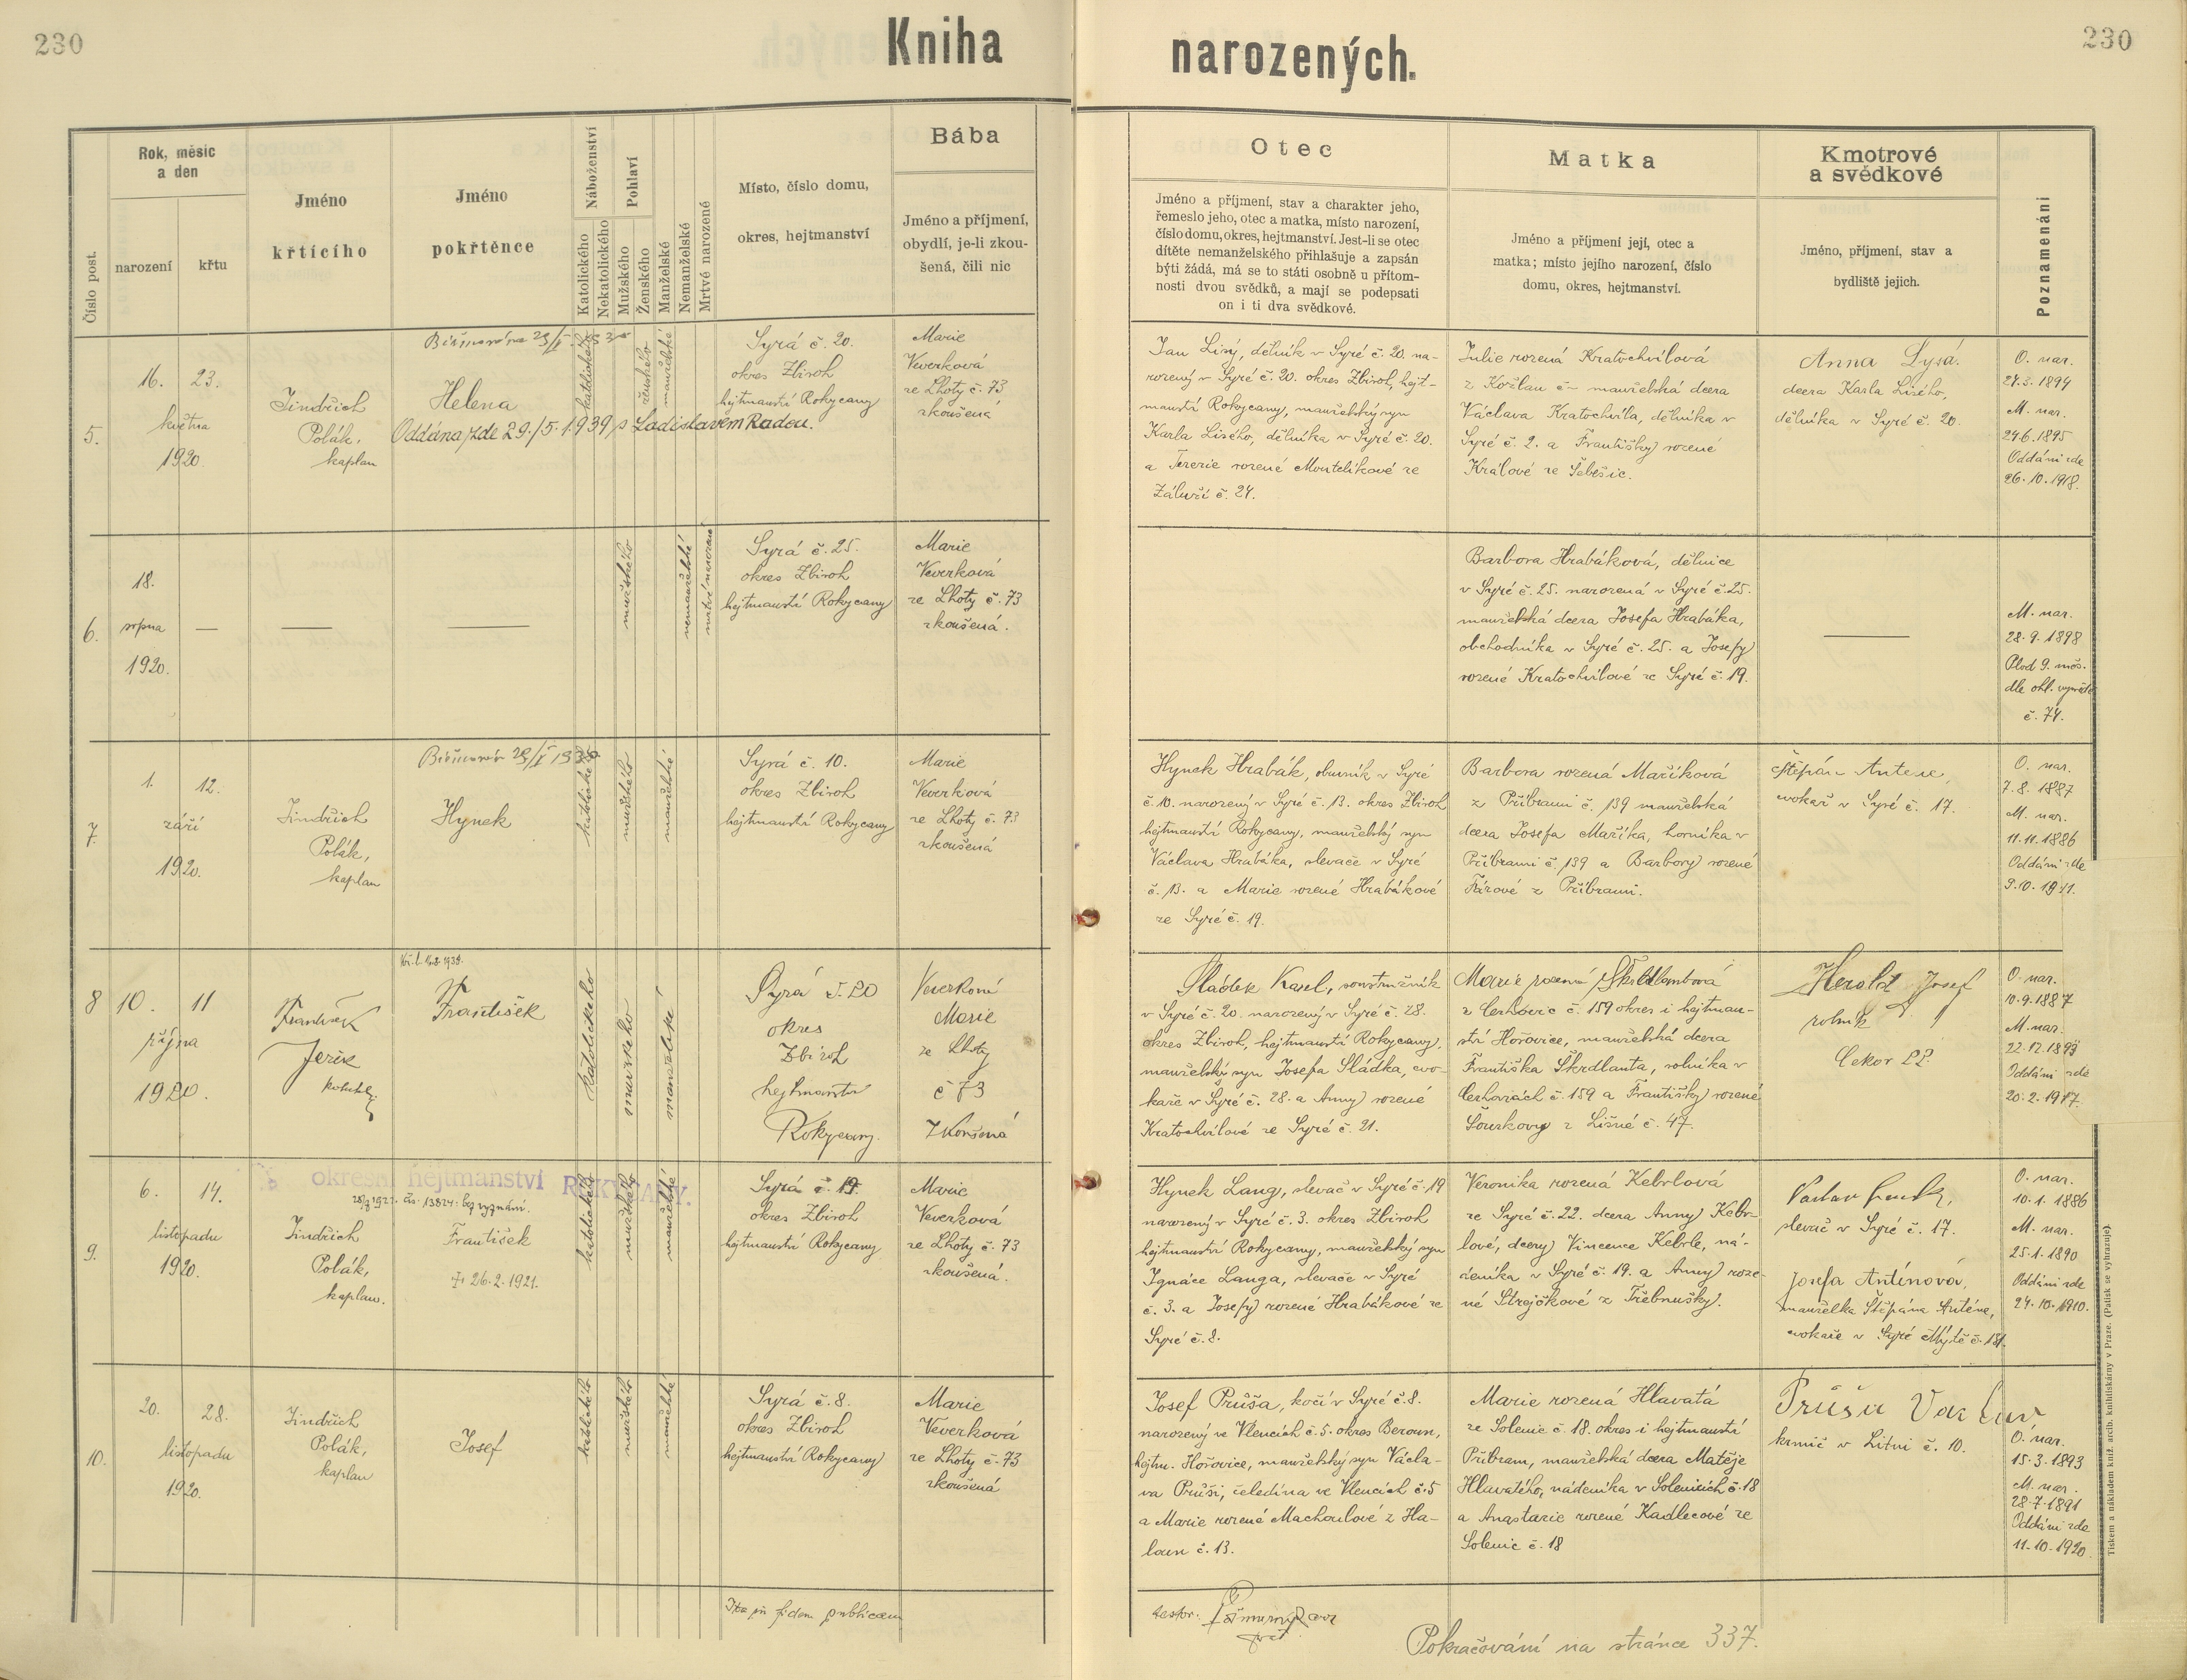 230
Kniha
narozených.
230
Číslo post.
Rok, měsíc
a den
narození
křtu
Jméno
křtícího
Jméno
pokřtěnce
Náboženství
Katolického
Nekatolického
Pohlaví
Mužského
Ženského
Manželské
Nemanželské
Mrtvé narozené
Místo, číslo domu,
okres, hejtmanství
Bába
Jméno a příjmení,
obydlí, je-li zkou-
šená, čili nic
Otec
Jméno a příjmení, stav a charakter jeho,
řemeslo jeho, otec a matka, místo narození,
číslo domu, okres, hejtmanství. Jest-li se otec
dítěte nemanželského přihlašuje a zapsán
býti žádá, má se to státi osobně u přítom-
nosti dvou svědků, a mají se podepsati
on i ti dva svědkové.
Matka
Jméno a příjmení její, otec a
matka; místo jejího narození, číslo
domu, okres, hejtmanství.
Kmotrové
a svědkové
Jméno, příjmení, stav a
bydliště jejich.
Poznamenání
5.
16. 23.
května
1920.
Jindřich
Polák,
kaplan
Helena
Oddána zde 29./5. 1939 s Ladislavem Radou.
katolického
ženského
manželské
Syrá č. 20.
okres Zbiroh
hejtmanství Rokycany
Marie
Veverková
ze Lhoty č. 73
zkoušená
Jan Lisý, dělník v Syré č. 20. na-
rozený v Syré č. 20. okres Zbiroh, hejt-
manství Rokycany, manželský syn
Karla Lisého, dělníka v Syré č. 20.
a Terezie rozené Mouteliková ze
Záluží č. 24.
Julie rozená Kratochvílová
z Kožlan č – manželská dcera
Václava Kratochvíla, dělníka v
Syré č. 2. a Františky rozené
Králové ze Šebešic.
Anna Lysá.
dcera Karla Lisého,
dělníka v Syré č. 20.
O. nar.
24.3.1894
M. nar.
24.6.1895
Oddáni zde
26.10.1918.
6.
18.
srpna
1920.
mužského
nemanželské
mrtvě narozené
Syrá č. 25.
okres Zbiroh
hejtmanství Rokycany
Marie
Veverková
ze Lhoty č. 73
zkoušená.
Barbora Hrabáková, dělnice
v Syré č. 25. narozená v Syré č. 25.
manželská dcera Josefa Hrabáka,
obchodníka v Syré č. 25. a Josefy
rozené Kratochvílové ze Syré č. 19.
M. nar.
28.9.1898
Plod 9. měs.
dle ohl.
č. 74.
7.
1. 12.
září
1920.
Jindřich
Polák,
kaplan
Hynek
katolického
mužského
manželské
Syrá č. 10.
okres Zbiroh
hejtmanství Rokycany
Marie
Veverková
ze Lhoty č. 73
zkoušená
Hynek Hrabák, obuvník v Syré
č. 10. narozený v Syré č. 13. okres Zbiroh
hejtmanství Rokycany, manželský syn
Václava Hrabáka, slevače v Syré
č. 13. a Marie rozené Hrabákové
ze Syré č. 19.
Barbora rozená Maříková
z Příbrami č. 139 manželská
dcera Josefa Maříka, horníka v
Příbrami č. 139 a Barbory rozené
Fárové z Příbrami.
Štěpán Antene,
cvokař v Syré č. 17.
O. nar.
7.8.1887
M. nar.
11.11.1886
Oddáni zde
9.10.1911.
8
10. 11
října
1920.
František
Jerie
František
katolického
mužského
manželské
Syrá č. 20
okres
Zbiroh
hejtmanství
Rokycany.
Veverková
Marie
ze Lhoty
č 73
Zkoušená
Sládek Karel, soustružník
v Syré č. 20. narozený v Syré č. 28.
okres Zbiroh, hejtmanství Rokycany,
manželský syn Josefa Sládka, cvo-
kaře v Syré č. 28. a Anny rozené
Kratochvílové ze Syré č. 21.
Marie rozená Škrdlantová
z Cerhovic č. 159 okres i hejtman-
ství Hořovice, manželská dcera
Františka Škrdlanta, rolníka v
Cerhovicích č. 159 a Františky rozené
Šourkovy z Lišné č. 47.
Herold Josef
rolník
Čekov 22.
O. nar.
10.9.1887
M. nar.
22.12.1893
Oddáni zde
20.2.1917.
okresní hejtmanství ROKYCANY.
čís. 13824. bez vyznání.
9.
6. 14.
listopadu
1920.
Jindřich
Polák,
kaplan.
František
† 26.2.1921.
katolického
mužského
manželské
Syrá č. 19.
okres Zbiroh
hejtmanství Rokycany
Marie
Veverková
ze Lhoty č. 73
zkoušená.
Hynek Lang, slevač v Syré č. 19
narozený v Syré č. 3. okres Zbiroh
hejtmanství Rokycany, manželský syn
Ignáce Langa, slevače v Syré
č. 3. a Josefy rozené Hrabákové ze
Syré č. 8.
Veronika rozená Kebrlová
ze Syré č. 22. dcera Anny Kebr-
lové, dcery Vincence Kebrle, ná-
deníka v Syré č. 19. a Anny roze-
né Strejčkové z Třebnušky.
slevač v Syré č. 17.
Josefa Antínová,
manželka Štěpána Anténe,
cvokaře v Syré Mýtě č. 181.
O. nar.
10.1.1886
M. nar.
25.1.1890
Oddáni zde
24.10.1910.
10.
20. 28.
listopadu
1920.
Jindřich
Polák,
kaplan
Josef
katolického
mužského
manželské
Syrá č. 8.
okres Zbiroh
hejtmanství Rokycany
Marie
Veverková
ze Lhoty č. 73
zkoušená
Josef Průša, kočí v Syré č. 8.
narozený ve Vlencích č. 5. okres Beroun,
hejtm. Hořovice, manželský syn Václa-
va Průši, čeledína ve Vlencích č. 5
a Marie rozené Machoulové z Ha-
loun č. 13.
Marie rozená Hlavatá
ze Solenic č. 18. okres i hejtmanství
Příbram, manželská dcera Matěje
Hlavatého, nádeníka v Solenicích č. 18
a Anastazie rozené Kadlecové ze
Solenic č. 18
Průša Václav
krmič v Litni č. 10.
O. nar.
15.3.1893
M. nar.
28.7.1891
Oddáni zde
11.10.1920.
Ita in fidem publicam
testor:
Pokračování na stránce 337.
Tiskem a nákladem kníž. arcib. knihtiskárny v Praze. (Patisk se vyhrazuje).